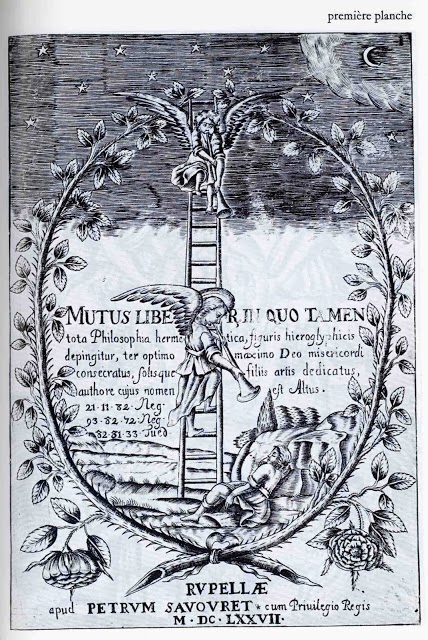 première planche
MUTUS LIBER, IN QUO TAMEN
tota Philosophia hermetica, figuris hieroglyphicis
depingitur, ter optimo maximo Deo misericordi
consecratus, solisque filiis artis dedicatus,
authore cujus nomen est Altus.
21 · 11 · 82 · Neg:
93 · 82 · 72 · Neg:
82 · 81 · 33 · tued
RVPELLÆ
apud PETRVM SAVOVRET * cum Privilegio Regis
M · DC · LXXVII ·